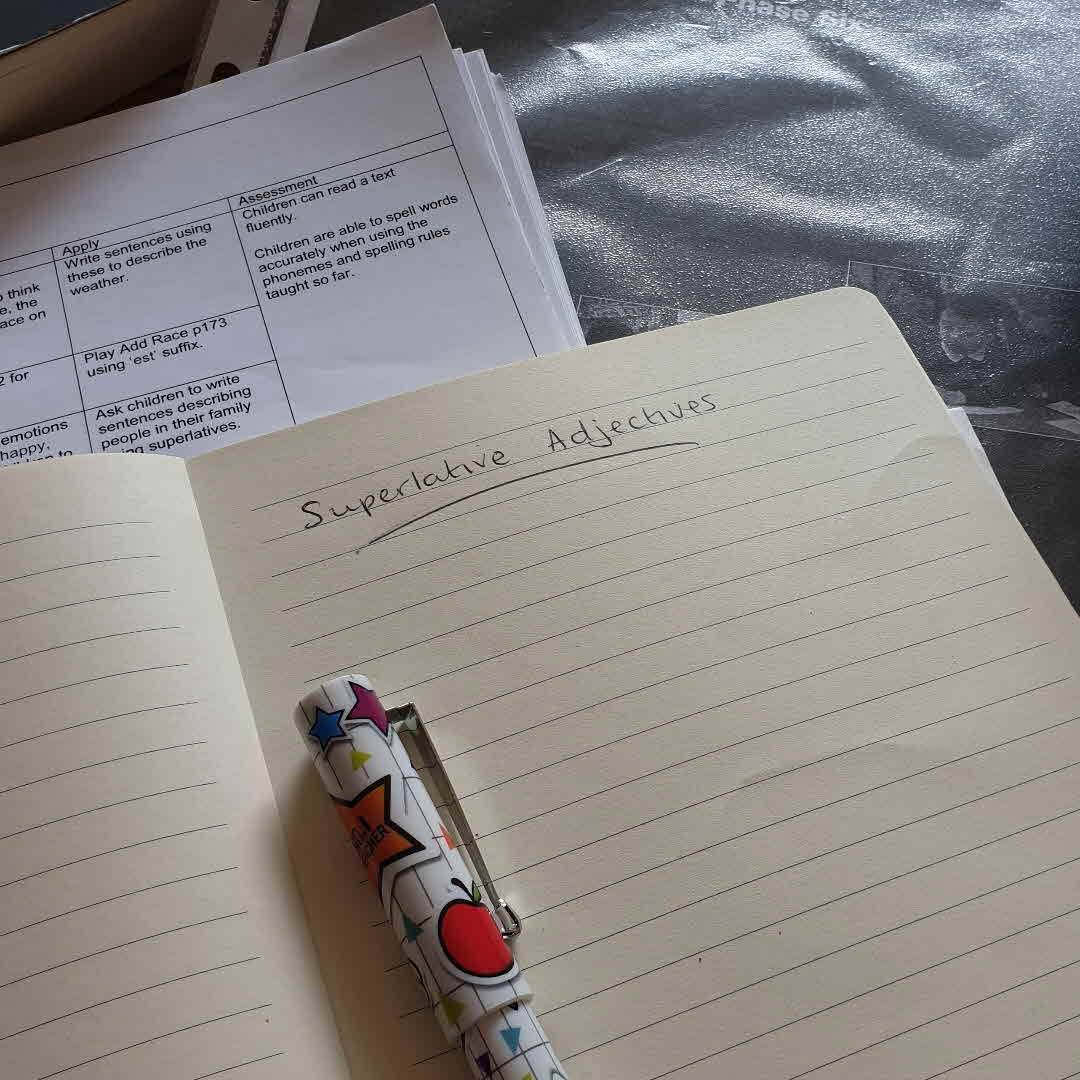 Phase Six
Assessment
Children can read a text
fluently.
Children are able to spell words
accurately when using the
phonemes and spelling rules
taught so far.
Apply
Write sentences using
these to describe the
weather.
Play Add Race p173
using 'est' suffix.
Ask children to write
sentences describing
people in their family
superlatives.
think
the
on
2 for
emotions
happy;
to
Superlative Adjectives